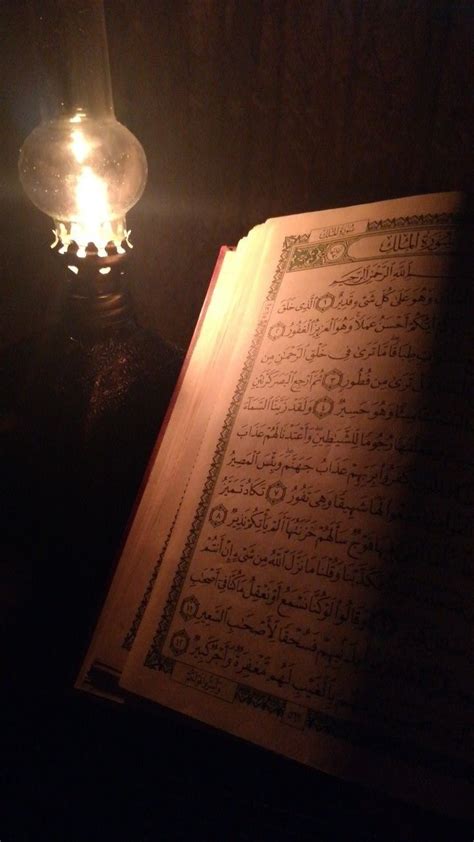 سُورَةُ المُلْكِ
سُورَةُ المُلْكِ
اللَّهِ الرَّحْمَٰنِ الرَّحِيمِ
وَهُوَ عَلَىٰ كُلِّ شَيْءٍ قَدِيرٌ ١ الَّذِي خَلَقَ
أَحْسَنُ عَمَلًا وَهُوَ الْعَزِيزُ الْغَفُورُ ٢
طِبَاقًا مَّا تَرَىٰ فِي خَلْقِ الرَّحْمَٰنِ مِن
تَرَىٰ مِن فُطُورٍ ٣ ثُمَّ ارْجِعِ الْبَصَرَ كَرَّتَيْنِ
وَهُوَ حَسِيرٌ ٤ وَلَقَدْ زَيَّنَّا السَّمَاءَ
رُجُومًا لِّلشَّيَاطِينِ وَأَعْتَدْنَا لَهُمْ عَذَابَ
كَفَرُوا بِرَبِّهِمْ عَذَابُ جَهَنَّمَ وَبِئْسَ الْمَصِيرُ
لَهَا شَهِيقًا وَهِيَ تَفُورُ ٧ تَكَادُ تَمَيَّزُ
فَوْجٌ سَأَلَهُمْ خَزَنَتُهَا أَلَمْ يَأْتِكُمْ نَذِيرٌ ٨
فَكَذَّبْنَا وَقُلْنَا مَا نَزَّلَ اللَّهُ مِن شَيْءٍ إِنْ أَنتُمْ
وَقَالُوا لَوْ كُنَّا نَسْمَعُ أَوْ نَعْقِلُ مَا كُنَّا فِي أَصْحَابِ
فَسُحْقًا لِّأَصْحَابِ السَّعِيرِ ١١
بِالْغَيْبِ لَهُم مَّغْفِرَةٌ وَأَجْرٌ كَبِيرٌ ١٢
٥٦٢